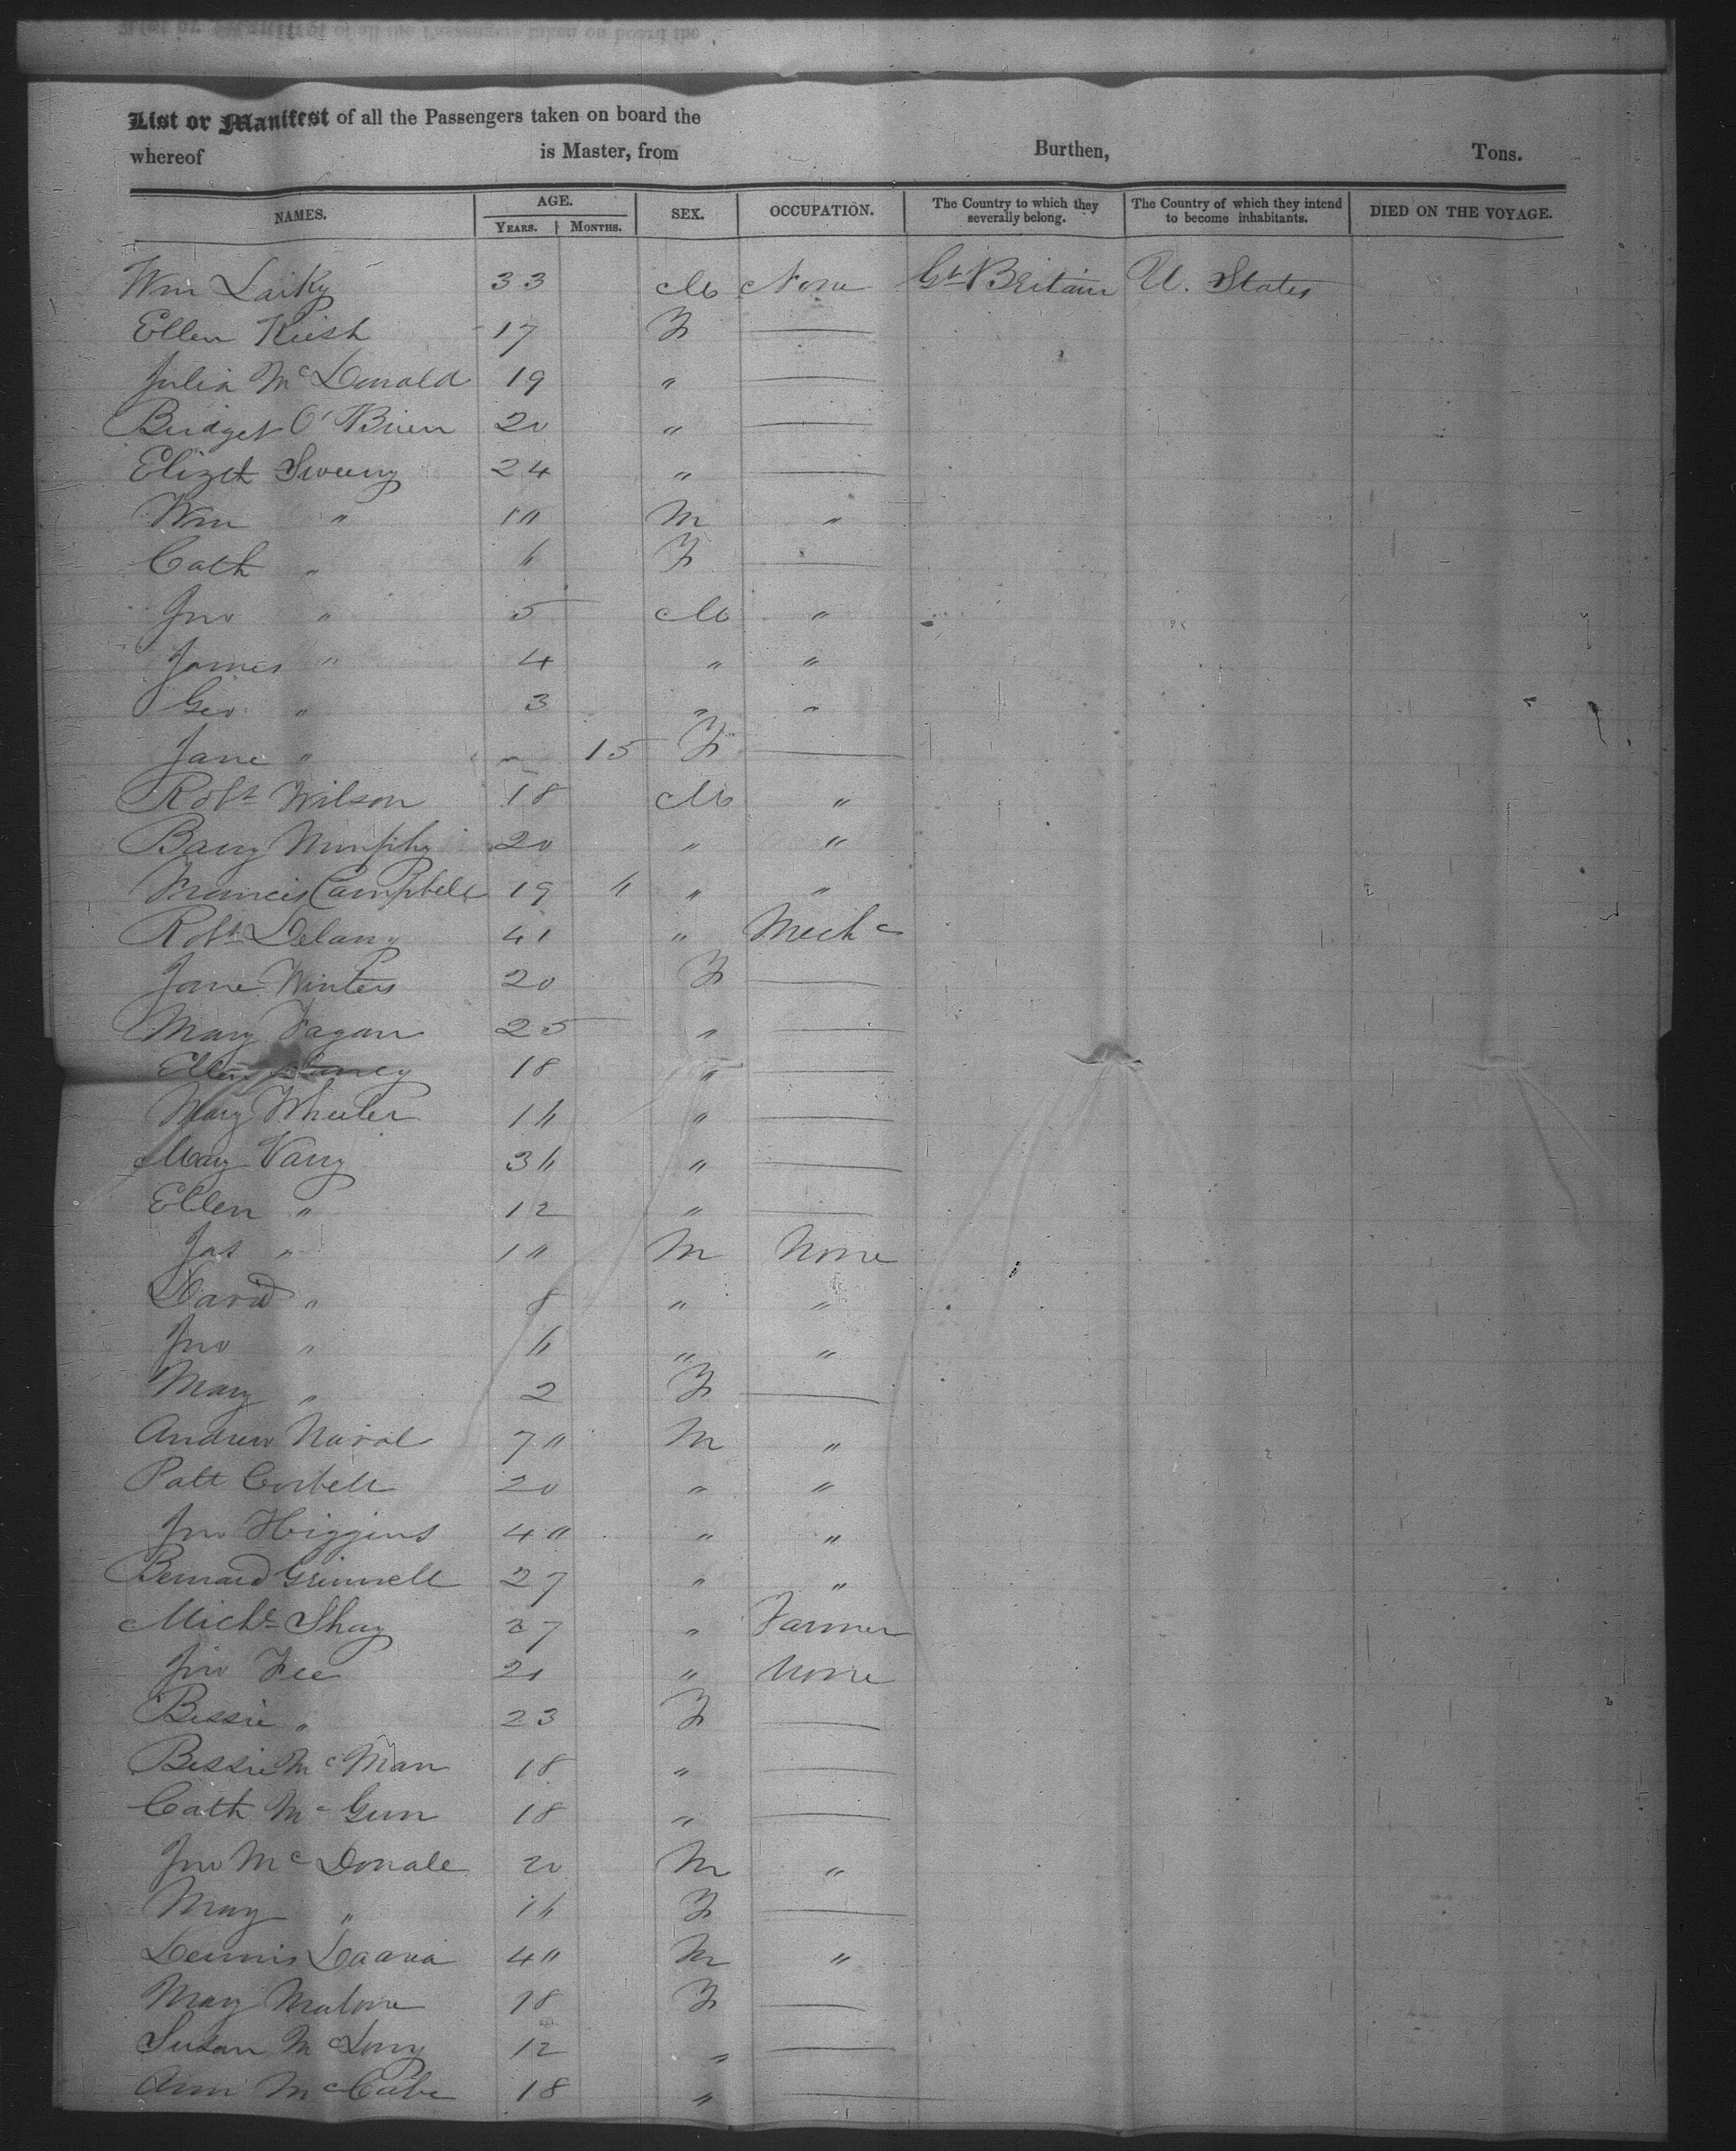 List or Manifest of all the Passengers taken on board the
whereof is Master, from Burthen, Tons.
NAMES. AGE. SEX. OCCUPATION. The Country to which they severally belong. The Country of which they intend to become inhabitants. DIED ON THE VOYAGE.
YEARS. MONTHS.
Wm 33 M None Gt Britain U. States
Ellen 17 F —
Julia McDonald 19 " —
Bridget O'Brien 20 " —
Elizth Sweeny 24 " —
Wm " 10 M "
Cath " 6 F —
Jno " 5 M "
James " 4 " "
Geo " 3 " "
Jane " 15 F —
Robt Wilson 18 M "
Barry Murphy 20 " "
Francis Campbell 19 " " "
Robt Delany 41 " Mechc
Jane Winters 20 F —
Mary Fagan 25 " —
Ellen 18 " —
Mary Wheeler 16 " —
Mary Varry 36 " —
Ellen " 12 " —
Jas " 10 M None
David " 8 " "
Jno " 6 " "
Mary " 2 F —
Andrew 70 M "
Patt Corbett 20 " "
Jno Higgins 40 " "
Bernard Grinnell 27 " "
Michl Shay 27 " Farmer
Jno Fee 21 " None
Bessie " 23 F —
Bessie McMan 18 " —
Cath McGunn 18 " —
Jno McDonale 20 M "
Mary " 16 F —
Dennis 40 M "
Mary Malone 18 F —
Susan 12 " —
Ann McCabe 18 " —